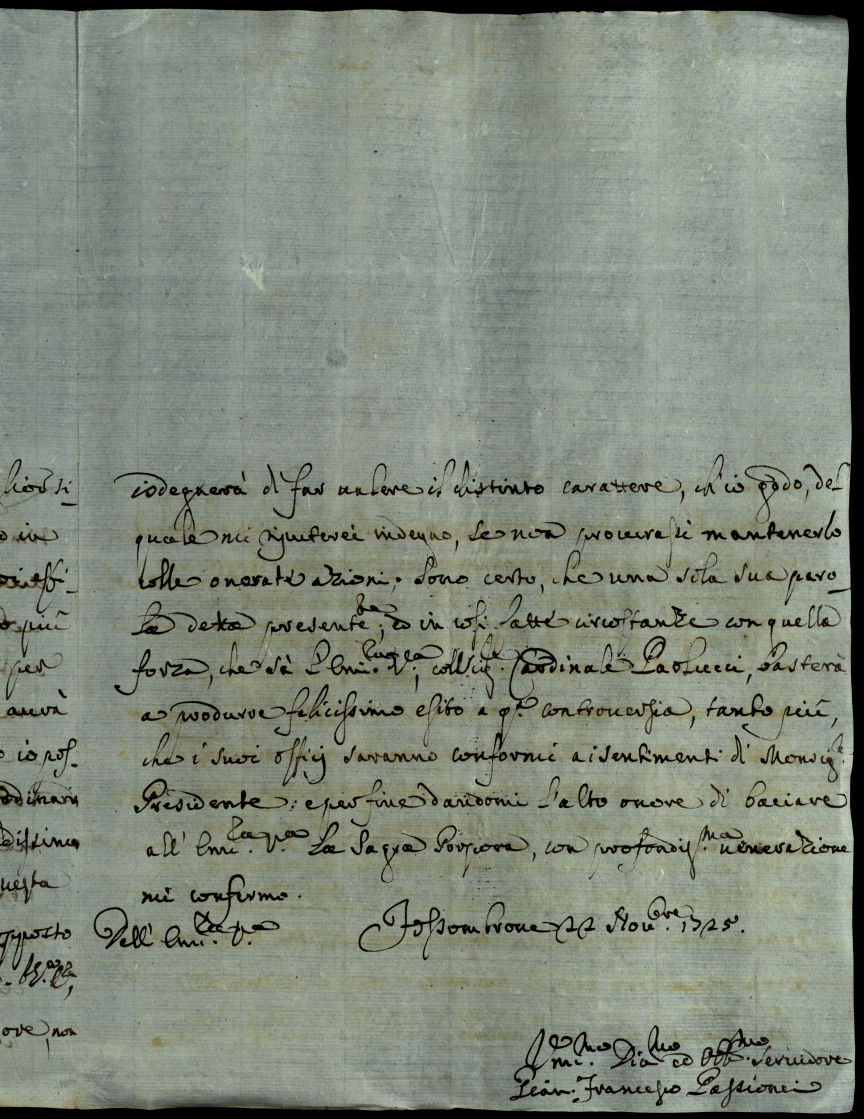 isdegnerà di far valere il distinto carattere, ch'io godo, del
quale mi riputerei indegno, se non procurassi mantenerlo
colle onorate azioni; Sono certo, che una sola sua paro_
la detta presente; ed in così fatte circostanze con quella
forza, che sà l'Emin.za V.ra, col Sig.r Cardinale Paolucci, basterà
a produrre felicissimo esito a q.ta controversia, tanto più,
che i suoi officij saranno conformi ai sentimenti di Monsig.r
Presidente: e per fine dandomi l'alto onore di baciare
all' Emi.za V.ra La Sagra Porpora, con profondiss.ma venerazione
mi confermo.
Dell' Emi.za V.ra Fossombrone 22 Nov.bre 1725.
Um.mo Div.mo ed Obb.mo Servidore
Gian. Francesco Passionei